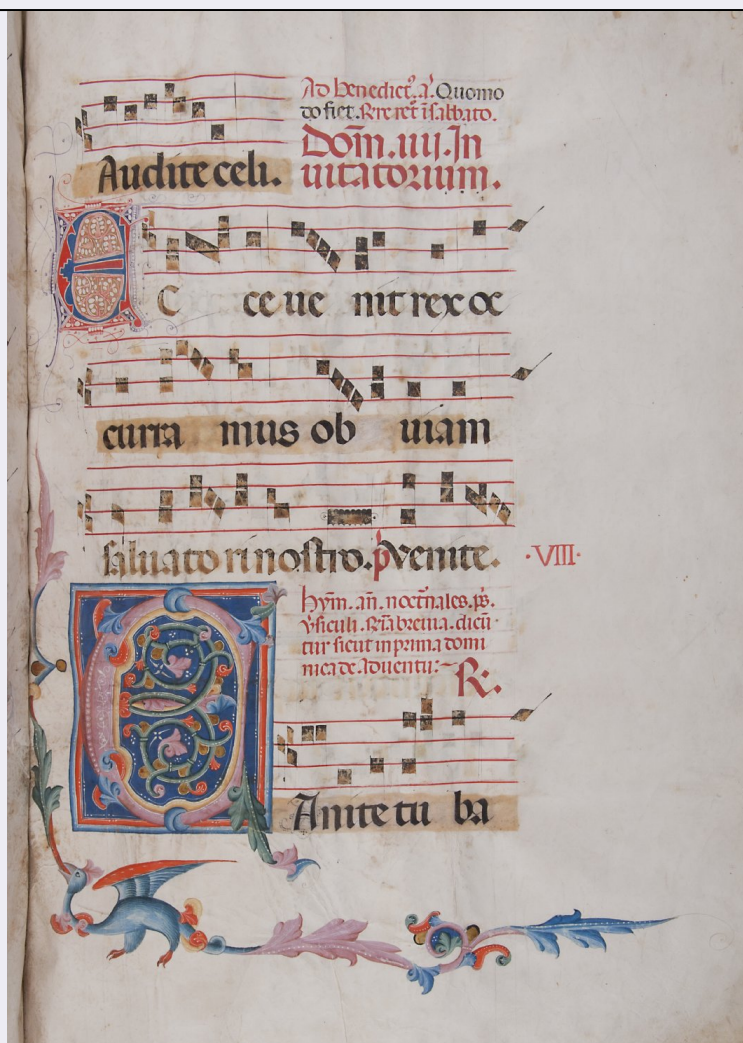 Ad Benedict᷒. a͛. Quomo
do fiet. Re re ret̄ i̅ sabbato.
Audite celi.
Dom̄. iiij. In
uitatorium.
E C ce ue nit rex oc
curra mus ob uiam
saluatori nostro. p̄s Venite. ·VIII·
hym̄. an̄. noct̄nales. ps̄.
v̄siculi. Rn̄a breuia. dicu͛
tur sicut in prima domi
nica de aduentu:~
R̷.
C Anite tu ba